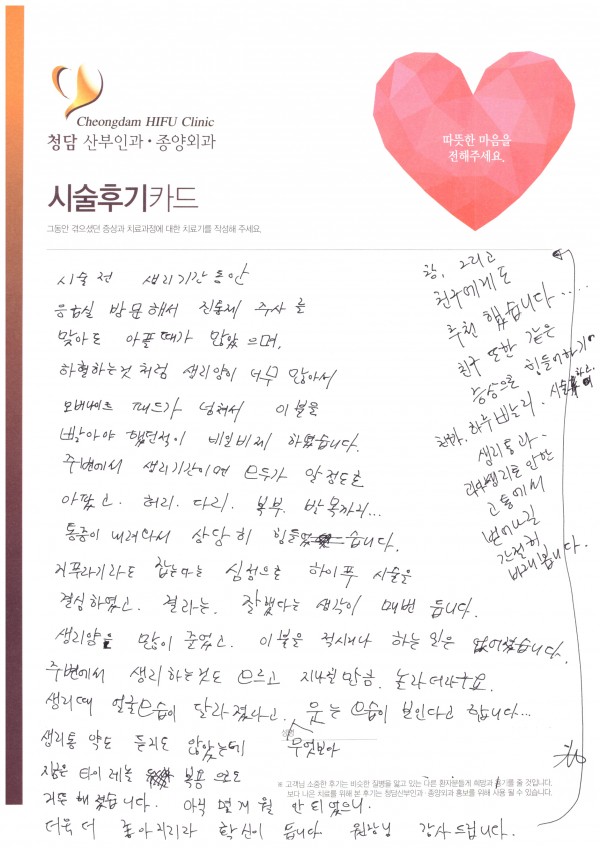 Cheongdam HIFU Clinic
청담 산부인과·종양외과
따뜻한 마음을
전해주세요.
시술후기카드
그동안 겪으셨던 증상과 치료과정에 대한 치료기를 작성해 주세요.
시술 전 생리기간 동안
응급실 방문해서 진통제 주사를
맞아도 아플때가 많았으며,
하혈하는것 처럼 생리양이 너무 많아서
오버나이트 패드가 넘쳐서 이불을
빨아야 했던적이 비일비재 하였습니다.
주변에서 생리기간이면 모두가 알정도로
아팠고. 허리. 다리. 복부. 발목까지...
통증이 내려와서 상당히 힘들었습니다.
지푸라기라도 잡는다는 심정으로 하이푸 시술을
결심하였고. 결과는. 잘했다는 생각이 매번 듭니다.
생리양은 많이 줄었고. 이불을 적시거나 하는 일은 없어졌습니다.
주변에서 생리하는것도 모르고 지나칠만큼. 놀라더라구요.
생리때 얼굴모습이 달라졌다고. 웃는 모습이 보인다고 합니다...
생리통 약도 듣지도 않았는데 무엇보다
지금은 타이레놀 복용으로도
거뜬해졌습니다. 아직 몇개월 안되었으니.
더욱 더 좋아지리라 확신이 듭니다. 원장님 감사드립니다.
참, 그리고
친구에게도
추천했습니다.....
친구 또한 같은
증상으로 힘들어하기에
하루빨리. 시술하고
생리통과.
과다생리로 인한
고통에서
벗어나길
간절히
바래봅니다.
성명
※ 고객님 소중한 후기는 비슷한 질병을 앓고 있는 다른 환자분들게 희망과 용기를 줄 것입니다.
보다 나은 치료를 위해 본 후기는 청담산부인과·종양외과 홍보를 위해 사용 될 수 있습니다.